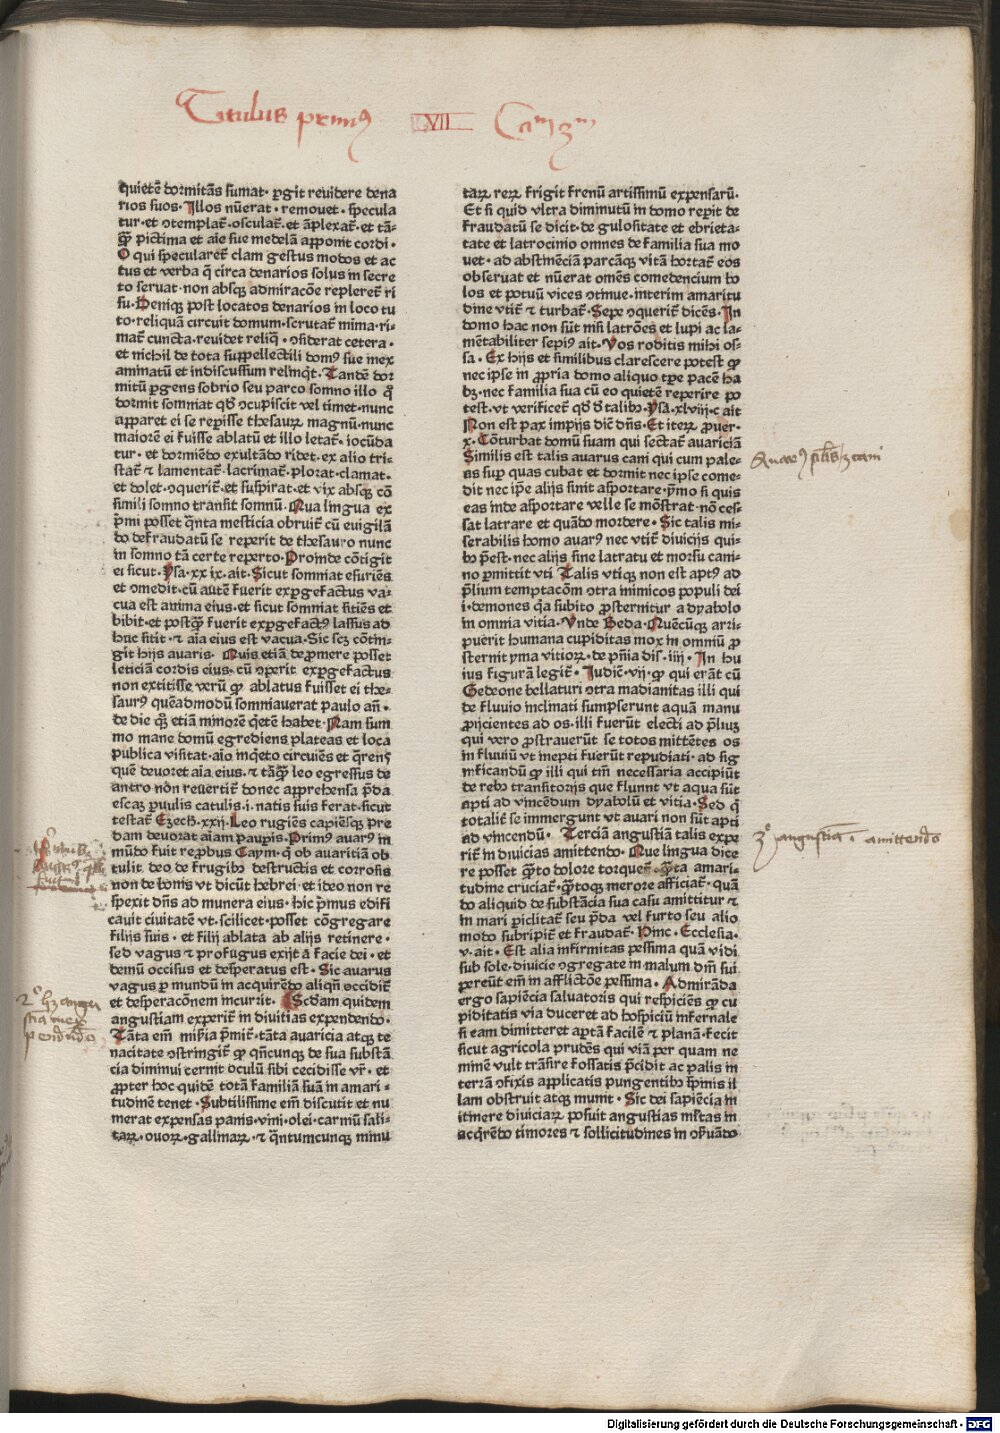 Titulus primꝰ VII Cam 3m
quietē dormitās sumat· ꝑgit reuidere dena
rios suos· Illos nūerat· remouet· specula
tur· et ↄtemplat᷑· osculat᷑· et āplexat᷑· et tā-
qꝫ̄ pictima et aīe sue medelā apponit cordi·
O qui specularet᷑ clam gestus modos et ac
tus et verba q̄ circa denarios solus in secre
to seruat· non absqꝫ admiracōe repleret᷑ ri
su· Deniqꝫ post locatos denarios in loco tu
to· reliquā circuit domum· scrutat᷑ mima· ri-
mat᷑ cuncta· reuidet reliq̄· ↄsiderat cetera·
et nichil de tota suppellectili domꝰ sue inex
aminatū et indiscussum relinq̄t· Tandē dor
mitū ꝑgens sobrio seu parco somno illo q̄
dormit somniat qd̄ ↄcupiscit vel timet· nunc
apparet ei se reꝑisse thesauꝝ magnū· nunc
maiorē ei fuisse ablatū et illo letat᷑· iocūda
tur· et dormiēdo exultādo ridet· ex alio tri-
stat᷑ ⁊ lamentat᷑· lacrimat᷑· plorat· clamat·
et dolet· ↄquerit᷑· et suspirat· et vix absqꝫ cō
simili somno transit somnū· Qua lingua ex
p̄mi posset q̄nta mesticia obruit᷑ cū euigilā
do defraudatū se reperit de thesauro nunc
in somno tā certe reperto· Proinde cōtigit
ei sicut· Ysa· xxix· ait· Sicut somniat esuriēs
et ↄmedit· cū autē fuerit expgefactus va-
cua est anima eius· et sicut somniat sitiēs et
bibit· et postqꝫ̄ fuerit expgefactꝰ lassus ad
huc sitit· ⁊ aīa eius est vacua· Sic scꝫ cōtin-
git hijs auaris· Quis etiā depromere posset
leticiā cordis eius· cū ↄperit expgefactus
non extitisse verū ꝙ ablatus fuisset ei the-
saurꝰ quēadmodū somniauerat paulo añ·
de die qꝫ̄ etiā minorē q̄etē habet· Nam sum
mo mane domū egrediens plateas et loca
publica visitat· aīo inq̄eto circuiēs et q̄rens
quē deuoret aīa eius· ⁊ tāqꝫ̄ leo egressus de
antro nōn reuertit᷑ donec apprehensa p̄da
escaꝫ ꝑuulis catulis· i· natis suis ferat· sicut
testat᷑ Ezech· xxij· Leo rugiēs capiēsqꝫ pre
dam deuorat aīam paupis· Primꝰ auarꝰ in
mūdo fuit reꝓbus Caym· q̄ ob auaritiā ob
tulit deo de frugibꝫ destructis et corrosis
non de bonis vt dicūt hebrei· et ideo non re
spexit dn̄s ad munera eius· hic p̄mus edifi
cauit ciuitatē vt· scilicet· posset cōgregare
filijs suis· et filij ablata ab alijs retinere·
sed vagus ⁊ profugus exijt a facie dei· et
demū occisus et desperatus est· Sic auarus
vagus ꝑ mundū in acquirēdo aliqn̄ occidit᷑
et desperacōnem incurrit· Scd̄am quidem
angustiam experit᷑ in diuitias expendendo·
Tāta em̄ mis̄ia p̄mit᷑· tāta auaricia atqꝫ te
nacitate ↄstringit᷑ ꝙ qn̄cunqꝫ de sua substā
cia diminui cernit oculū sibi cecidisse vr̄· et
ꝓpter hoc quidē totā familiā suā in amari-
tudinē tenet· Subtilissime em̄ discutit et nu
merat expensas panis· vini· olei· carniū sali-
taꝝ· ouoꝝ· gallinaꝝ· ⁊ q̄ntumcunqꝫ minu
taꝝ reꝝ frigit frenū artissimū expensarū·
Et si quid vltra diminutū in domo reꝑit de
fraudatū se dicit· de gulositate et ebrieta-
tate et latrocinio omnes de familia sua mo
uet· ad abstinēciā parcāqꝫ vitā hortat᷑ eos
obseruat et nūerat omēs comedencium bo
los et potuū vices ↄtinue· interim amaritu
dine vtit᷑ ⁊ turbat᷑· Sepe ↄquerit᷑ dicēs· In
domo hac non sūt nisi latrōes et lupi ac la-
mētabiliter sepiꝰ ait· Vos roditis mihi os-
sa· Ex hijs et similibus clarescere potest ꝙ
nec ipse in ꝓpria domo aliquo tꝑe pacē ha
bꝫ· nec familia sua cū eo quietē reperire po
test· vt verificet᷑ qd̄ d̄ talibꝫ· Ysa· xlviij· c· ait
Non est pax impijs dic̄ dn̄s· Et iteꝝ ꝓuer·
x· Cōturbat domū suam qui sectat᷑ auariciā
Similis est talis auarus cani qui cum pale-
as suꝑ quas cubat et dormit nec ipse come-
dit nec ip̄e alijs sinit asportare· p̄mo si quis
eas inde asportare velle se mōstrat· nō ces-
sat latrare et quādo mordere· Sic talis mi-
serabilis homo auarꝰ nec vtit᷑ diuicijs qui-
bꝫ p̄est· nec alijs sine latratu et morsu cani-
no ꝑmittit vti Talis vtiqꝫ non est aptꝰ ad
p̄lium temptacōm ↄtra inimicos populi dei
i· demones q̄a subito ꝓsternitur a dyabolo
in omnia vitia· Vnde Beda· Quēcūqꝫ arri-
puerit humana cupiditas mox in omniū ꝓ
sternit yma vitioꝝ· de pn̄ia dis· iiij· In hu
ius figurā legit᷑· Judic̄· vij· ꝙ qui erāt cū
Gedeone bellaturi ↄtra madianitas illi qui
de fluuio inclinati sumpserunt aquā manu
ꝓijcientes ad os· illi fuerūt electi ad p̄liuꝫ
qui vero ꝓstrauerūt se totos mittētes os
in fluuiū vt inepti fuerūt repudiati· ad sig
nificandū ꝙ illi qui tm̄ necessaria accipiūt
de rebꝫ transitorijs que fluunt vt aqua sūt
apti ad vincēdum dyabolū et vitia· Sed q̄
totalit᷑ se immergunt vt auari non sūt apti
ad vincendū· Terciā angustiā talis expe
rit᷑ in diuicias amittendo· Que lingua dice
re posset q̄nto dolore torquet᷑ q̄nta amari-
tudine cruciat᷑· q̄ntoqꝫ merore afficiat᷑· quā
do aliquid de substācia sua casu amittitur ⁊
in mari periclitat᷑ seu p̄da vel furto seu alio
modo subripit᷑ et fraudat᷑· Hinc· Ecclesia·
v· ait· Est alia infirmitas pessima quā vidi
sub sole· diuicie ↄgregate in malum dn̄i sui
pereūt em̄ in afflictōe pessima· Admirāda
ergo sapiēcia saluatoris qui respiciēs ꝙ cu
piditatis via duceret ad hospiciū infernale
si eam dimitteret aꝑtā facilē ⁊ planā· fecit
sicut agricola prudēs qui viā per quam ne
minē vult trāsire fossatis p̄cidit ac palis in
terrā ↄfixis applicatis pungentibꝫ spinis il
lam obstruit atqꝫ munit· Sic dei sapiēcia in
itinere diuiciaꝝ posuit angustias ml̄tas in
acq̄rēdo timores ⁊ sollicitudines in ↄẜuādo
Auarꝰ silis ē cani
3ᵒ angustia· amittendo